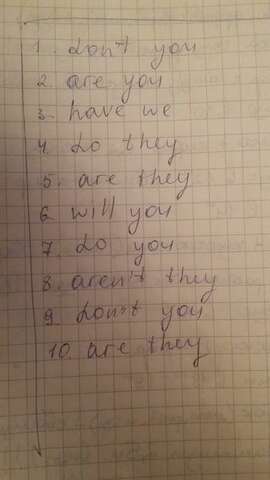 1. don't you
2. are you
3. have we
4. do they
5. are they
6. will you
7. do you
8. aren't they
9. don't you
10. are they